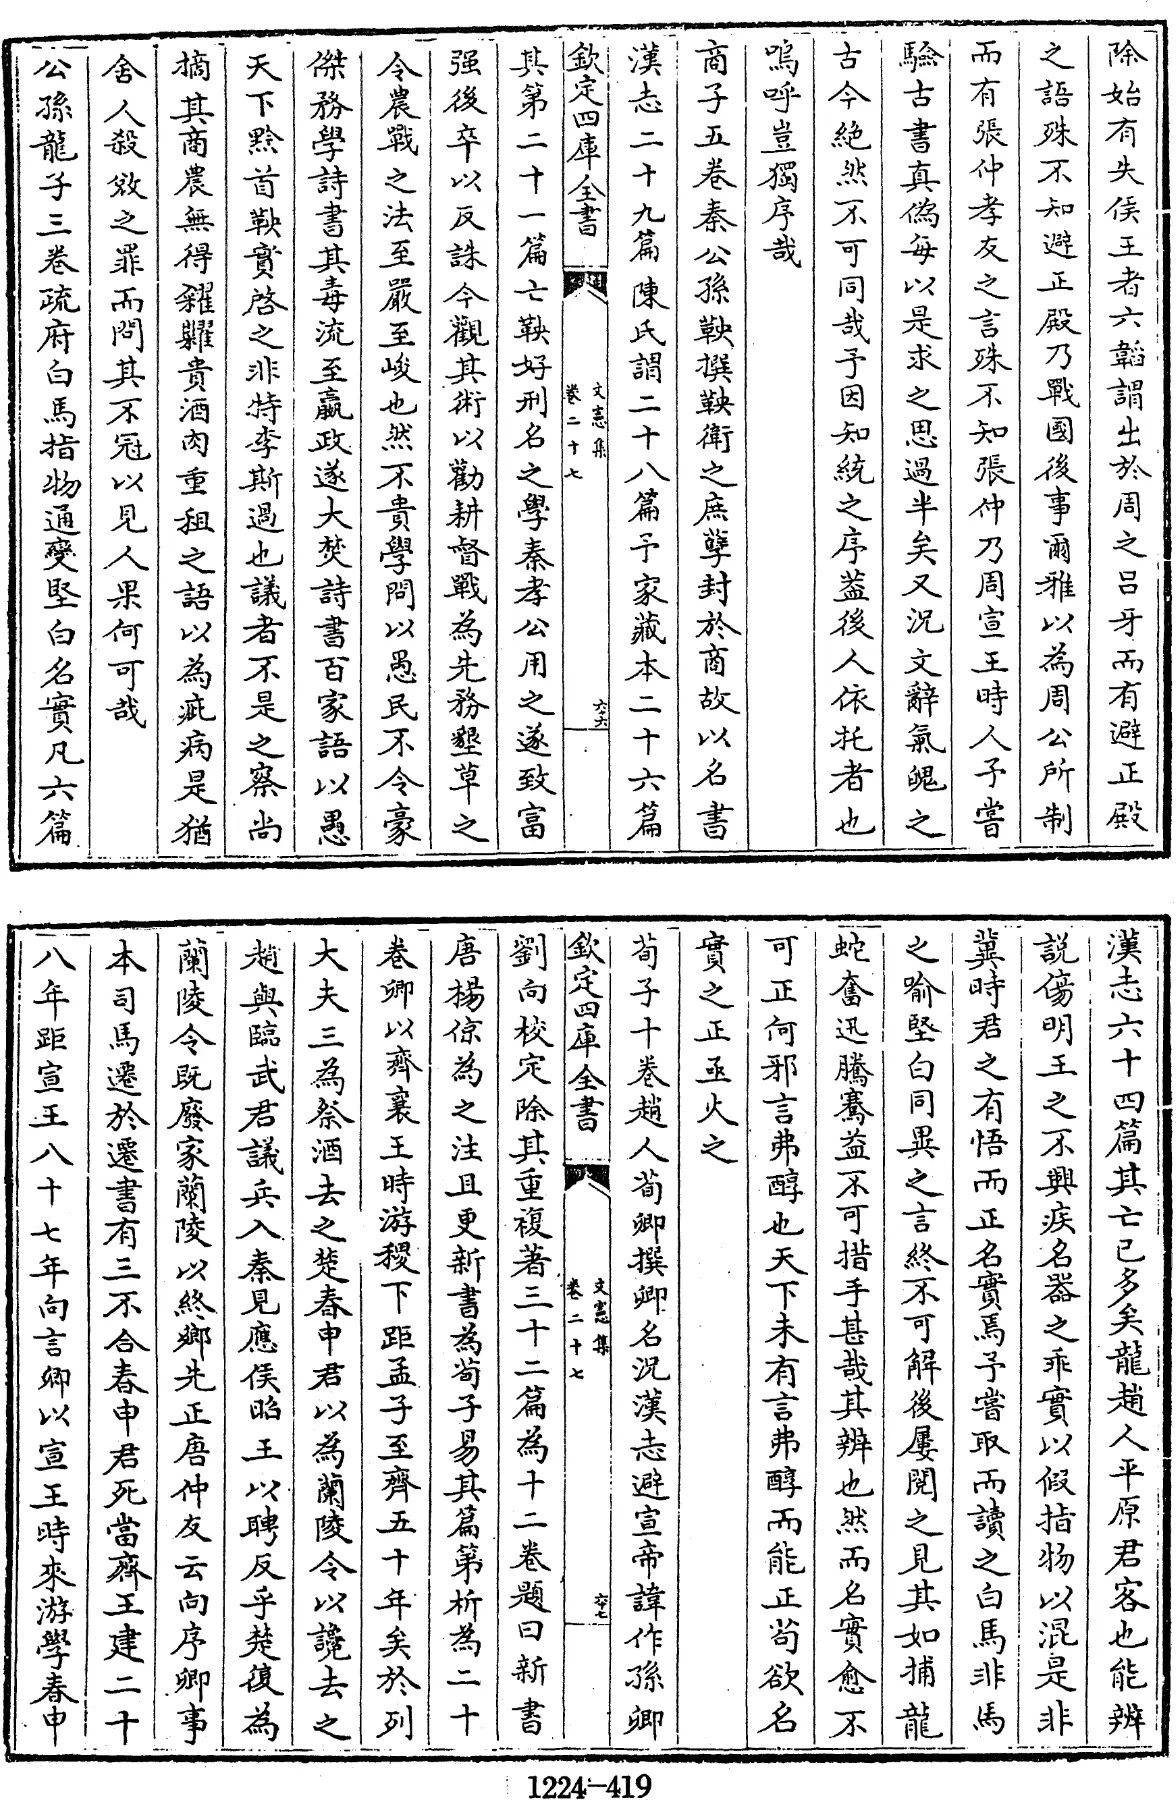 除始有失侯王者六韜謂出於周之呂牙而有避正殿
之語殊不知避正殿乃戰國後事爾雅以為周公所制
而有張仲孝友之言殊不知張仲乃周宣王時人予嘗
驗古書真偽每以是求之思過半矣又況文辭氣魄之
古今絶然不可同哉予因知統之序葢後人依托者也
嗚呼豈獨序哉
商子五卷秦公孫鞅撰鞅衛之庶孽封於商故以名書
漢志二十九篇陳氏謂二十八篇予家藏本二十六篇
欽定四庫全書
文憲集
卷二十七
六六
其第二十一篇亡鞅好刑名之學秦孝公用之遂致富
强後卒以反誅今觀其術以勸耕督戰為先務墾草之
令農戰之法至嚴至峻也然不貴學問以愚民不令豪
傑務學詩書其毒流至嬴政遂大焚詩書百家語以愚
天下黔首鞅實啓之非特李斯過也議者不是之察尚
摘其商農無得糴糶貴酒肉重租之語以為疵病是猶
舍人殺敓之罪而問其不冠以見人果何可哉
公孫龍子三卷疏府白馬指物通變堅白名實凡六篇
漢志六十四篇其亡已多矣龍趙人平原君客也能辨
說傷明王之不興疾名器之乖實以假指物以混是非
冀時君之有悟而正名實焉予嘗取而讀之白馬非馬
之喻堅白同異之言終不可解後屢閱之見其如捕龍
蛇奮迅騰騫益不可措手甚哉其辨也然而名實愈不
可正何邪言弗醇也天下未有言弗醇而能正苟欲名
實之正亟火之
荀子十卷趙人荀卿撰卿名況漢志避宣帝諱作孫卿
欽定四庫全書
文憲集
卷二十七
六十七
劉向校定除其重複著三十二篇為十二卷題曰新書
唐揚倞為之注且更新書為荀子易其篇第析為二十
卷卿以齊襄王時游稷下距孟子至齊五十年矣於列
大夫三為祭酒去之楚春申君以為蘭陵令以讒去之
趙與臨武君議兵入秦見應侯昭王以聘反乎楚復為
蘭陵令既廢家蘭陵以終鄉先正唐仲友云向序卿事
本司馬遷於遷書有三不合春申君死當齊王建二十
八年距宣王八十七年向言卿以宣王時來游學春申
1224-419